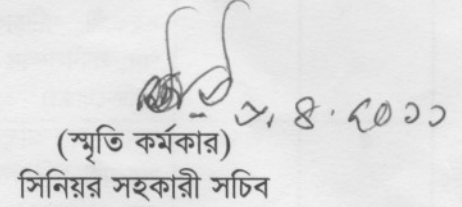 ৪.২০১১
(স্মৃতি কর্মকার)
সিনিয়র সহকারী সচিব